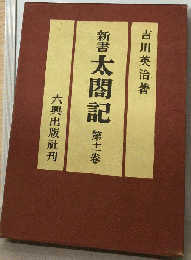 吉川英治著
新書太閤記 第十一巻
六興出版社刊